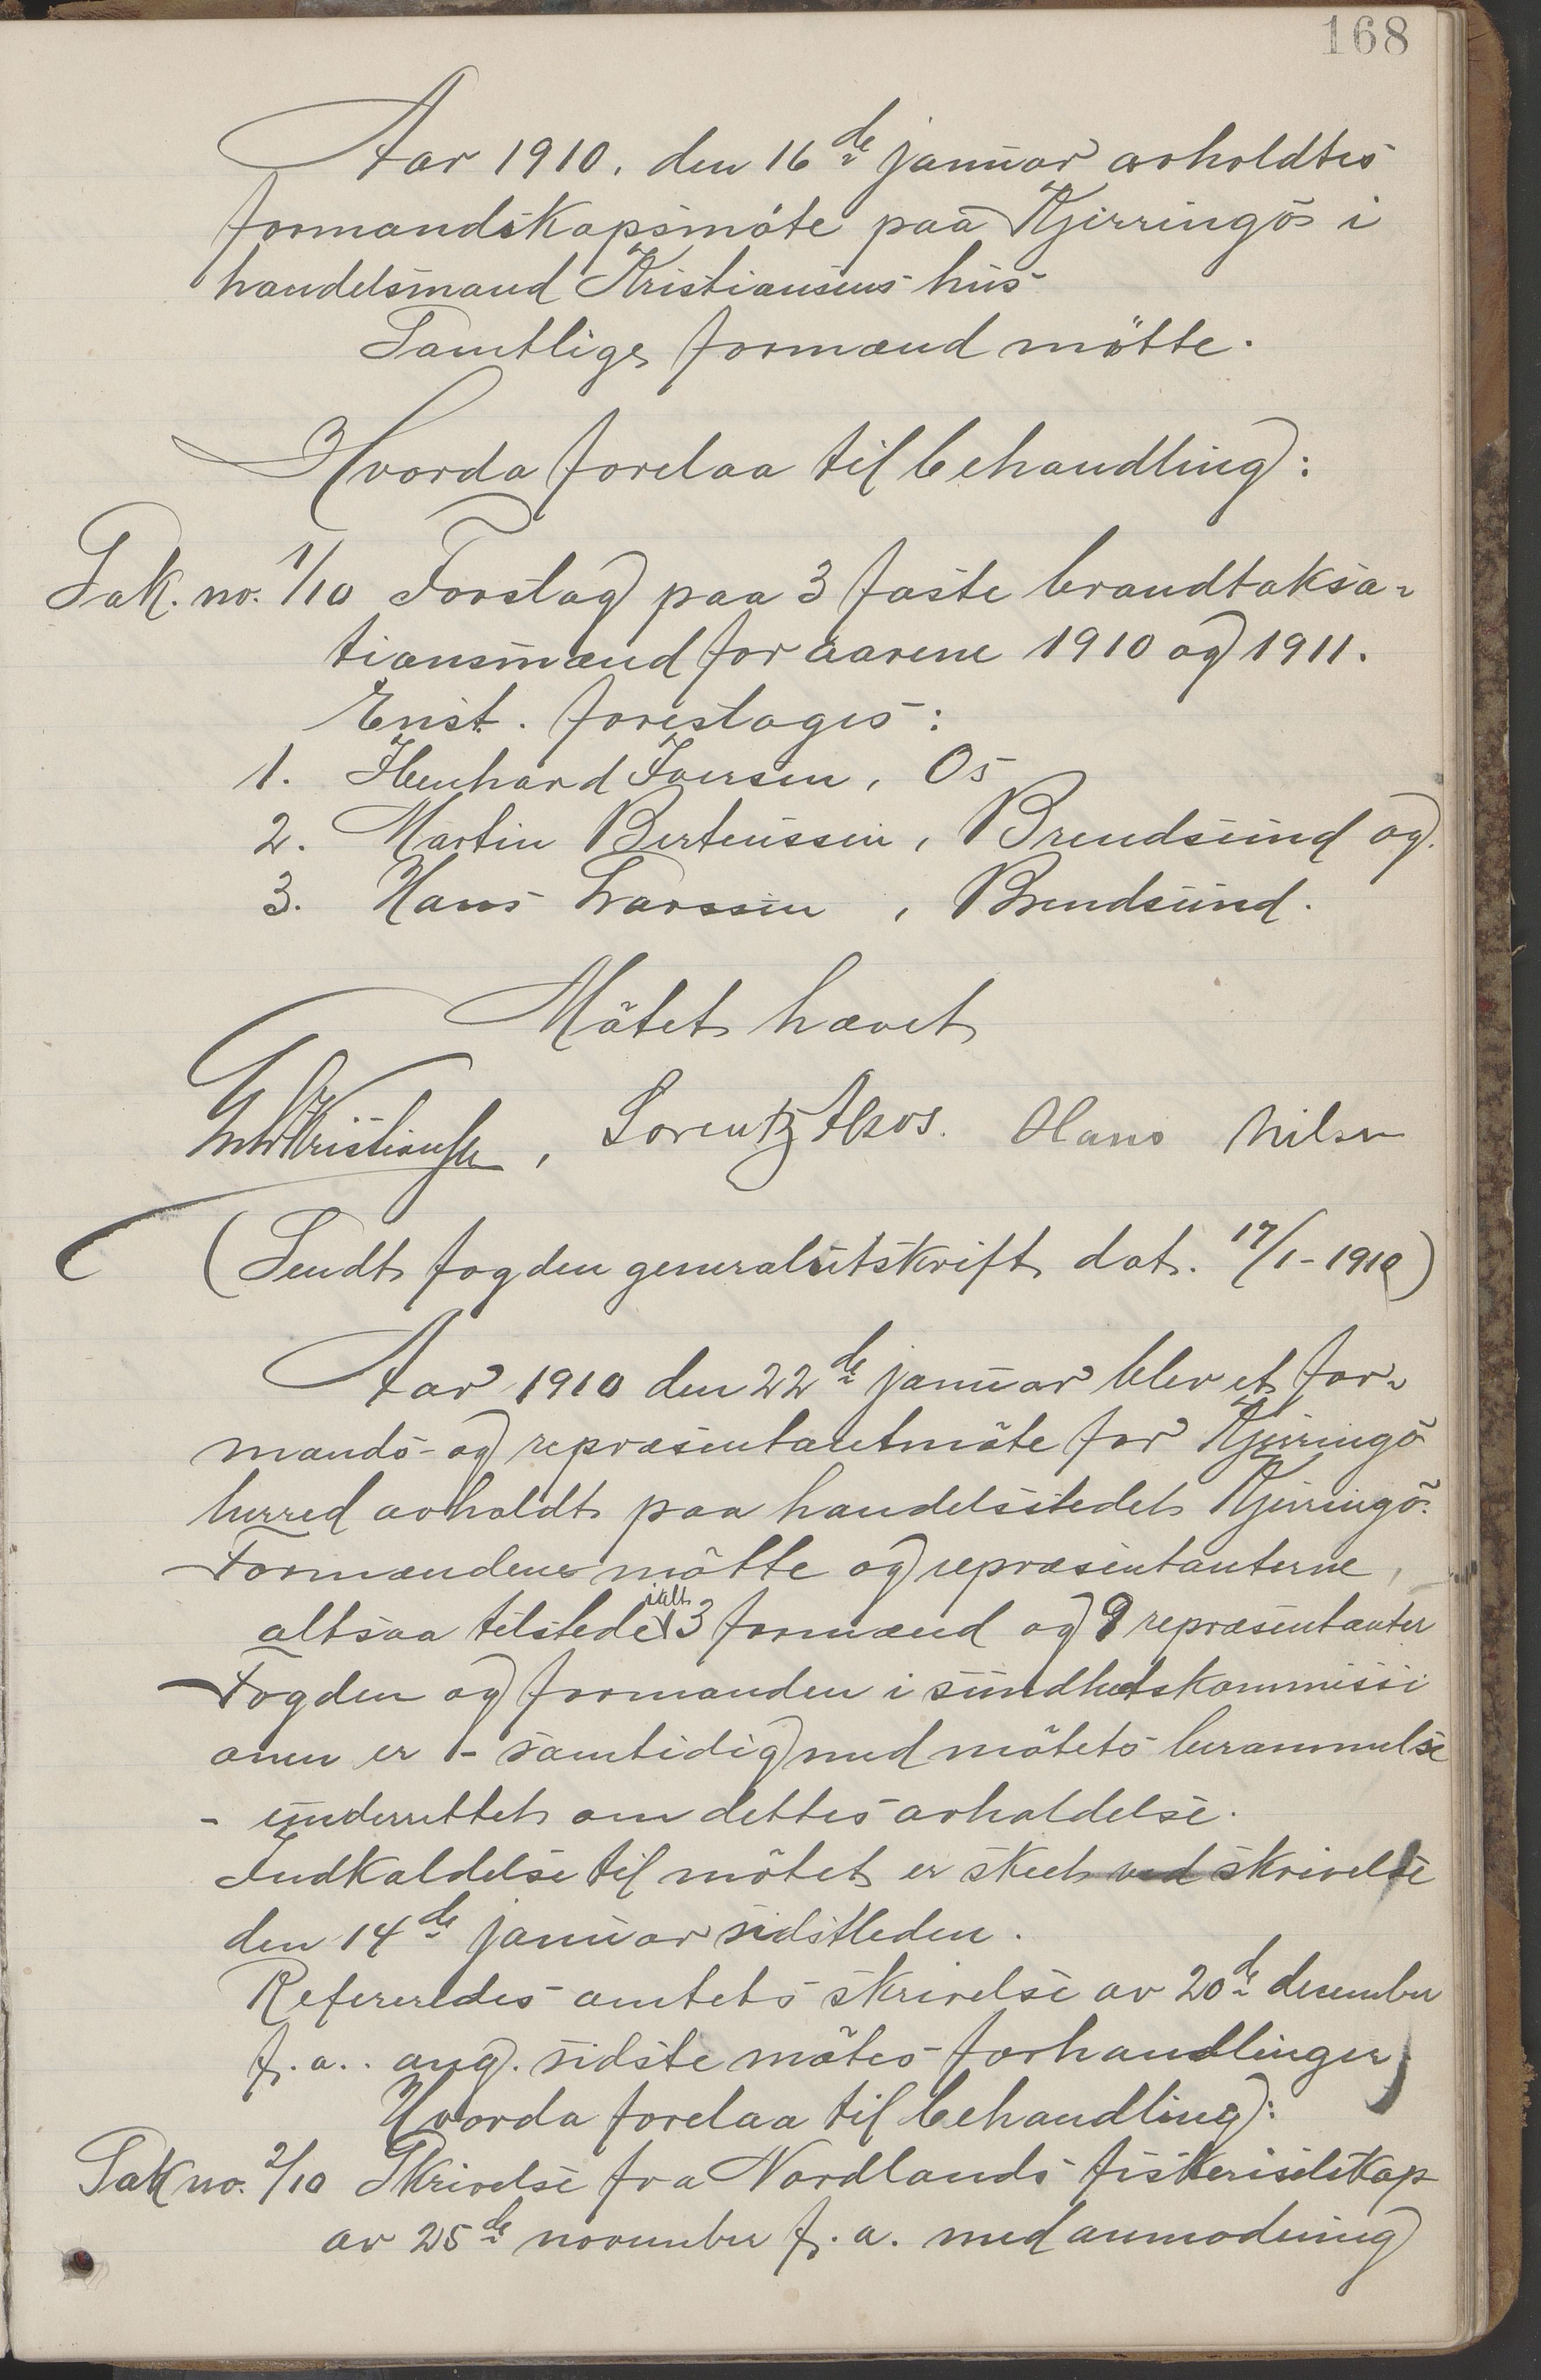 168
Aar 1910. den 16de januar avholdtes
formandskapsmöte paa Kjerringö i
handelsmand Kristiansens hus
Samtlige formænd mötte.
Hvorda forelaa til behandling:
Sak. no. 1/10 Forslag paa 3 faste brandtaksa-
tionsmænd for aarene 1910 og 1911.
Enst. foreslages:
1. Ibenhard Iversen, Os
2. Martin Berteussen, Brendsund og
3. Hans Larssen, Brendsund.
Mötet hævet
Kristiansen, Lorentz Alsos. Hans Nilsen
(Sendt fogden generalutskrift dat. 17/1-1910)
Aar 1910 den 22de januar blev et for-
mands- og repræsentantmöte for Kjerringö
herred avholdt paa handelsstedet Kjerringö.
Formændene mötte og repræsentanterne,
altsaa tilstede ialt 3 formænd og 9 repræsentanter
Fogden og formanden i sundhetskommissi
onen er - samtidig med mötets berammelse
- underrettet om dettes avholdelse.
Indkaldelse til mötet er skeet ved skrivelse
den 14de januar sidstleden.
Refereredes amtets skrivelse av 20de december
f. a. ang. sidste mötes forhandlinger
Hvorda forelaa til behandling:
Sak no. 2/10 Skrivelse fra Nordlands fiskeriselskap
av 25de november f. a. med anmodning